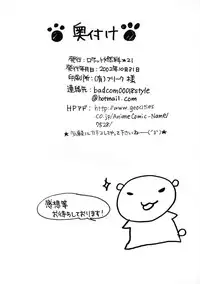 奥付け
発行：ロケット燃料★21
発行年月日：2002年10月31日
印刷所：(有)フリーク 様
連絡先：badcom00018style
@hotmail.com
HPアド：http://www.geocities
.co.jp/AnimeComic-Name/
9528/
感想等
お待ちしております！